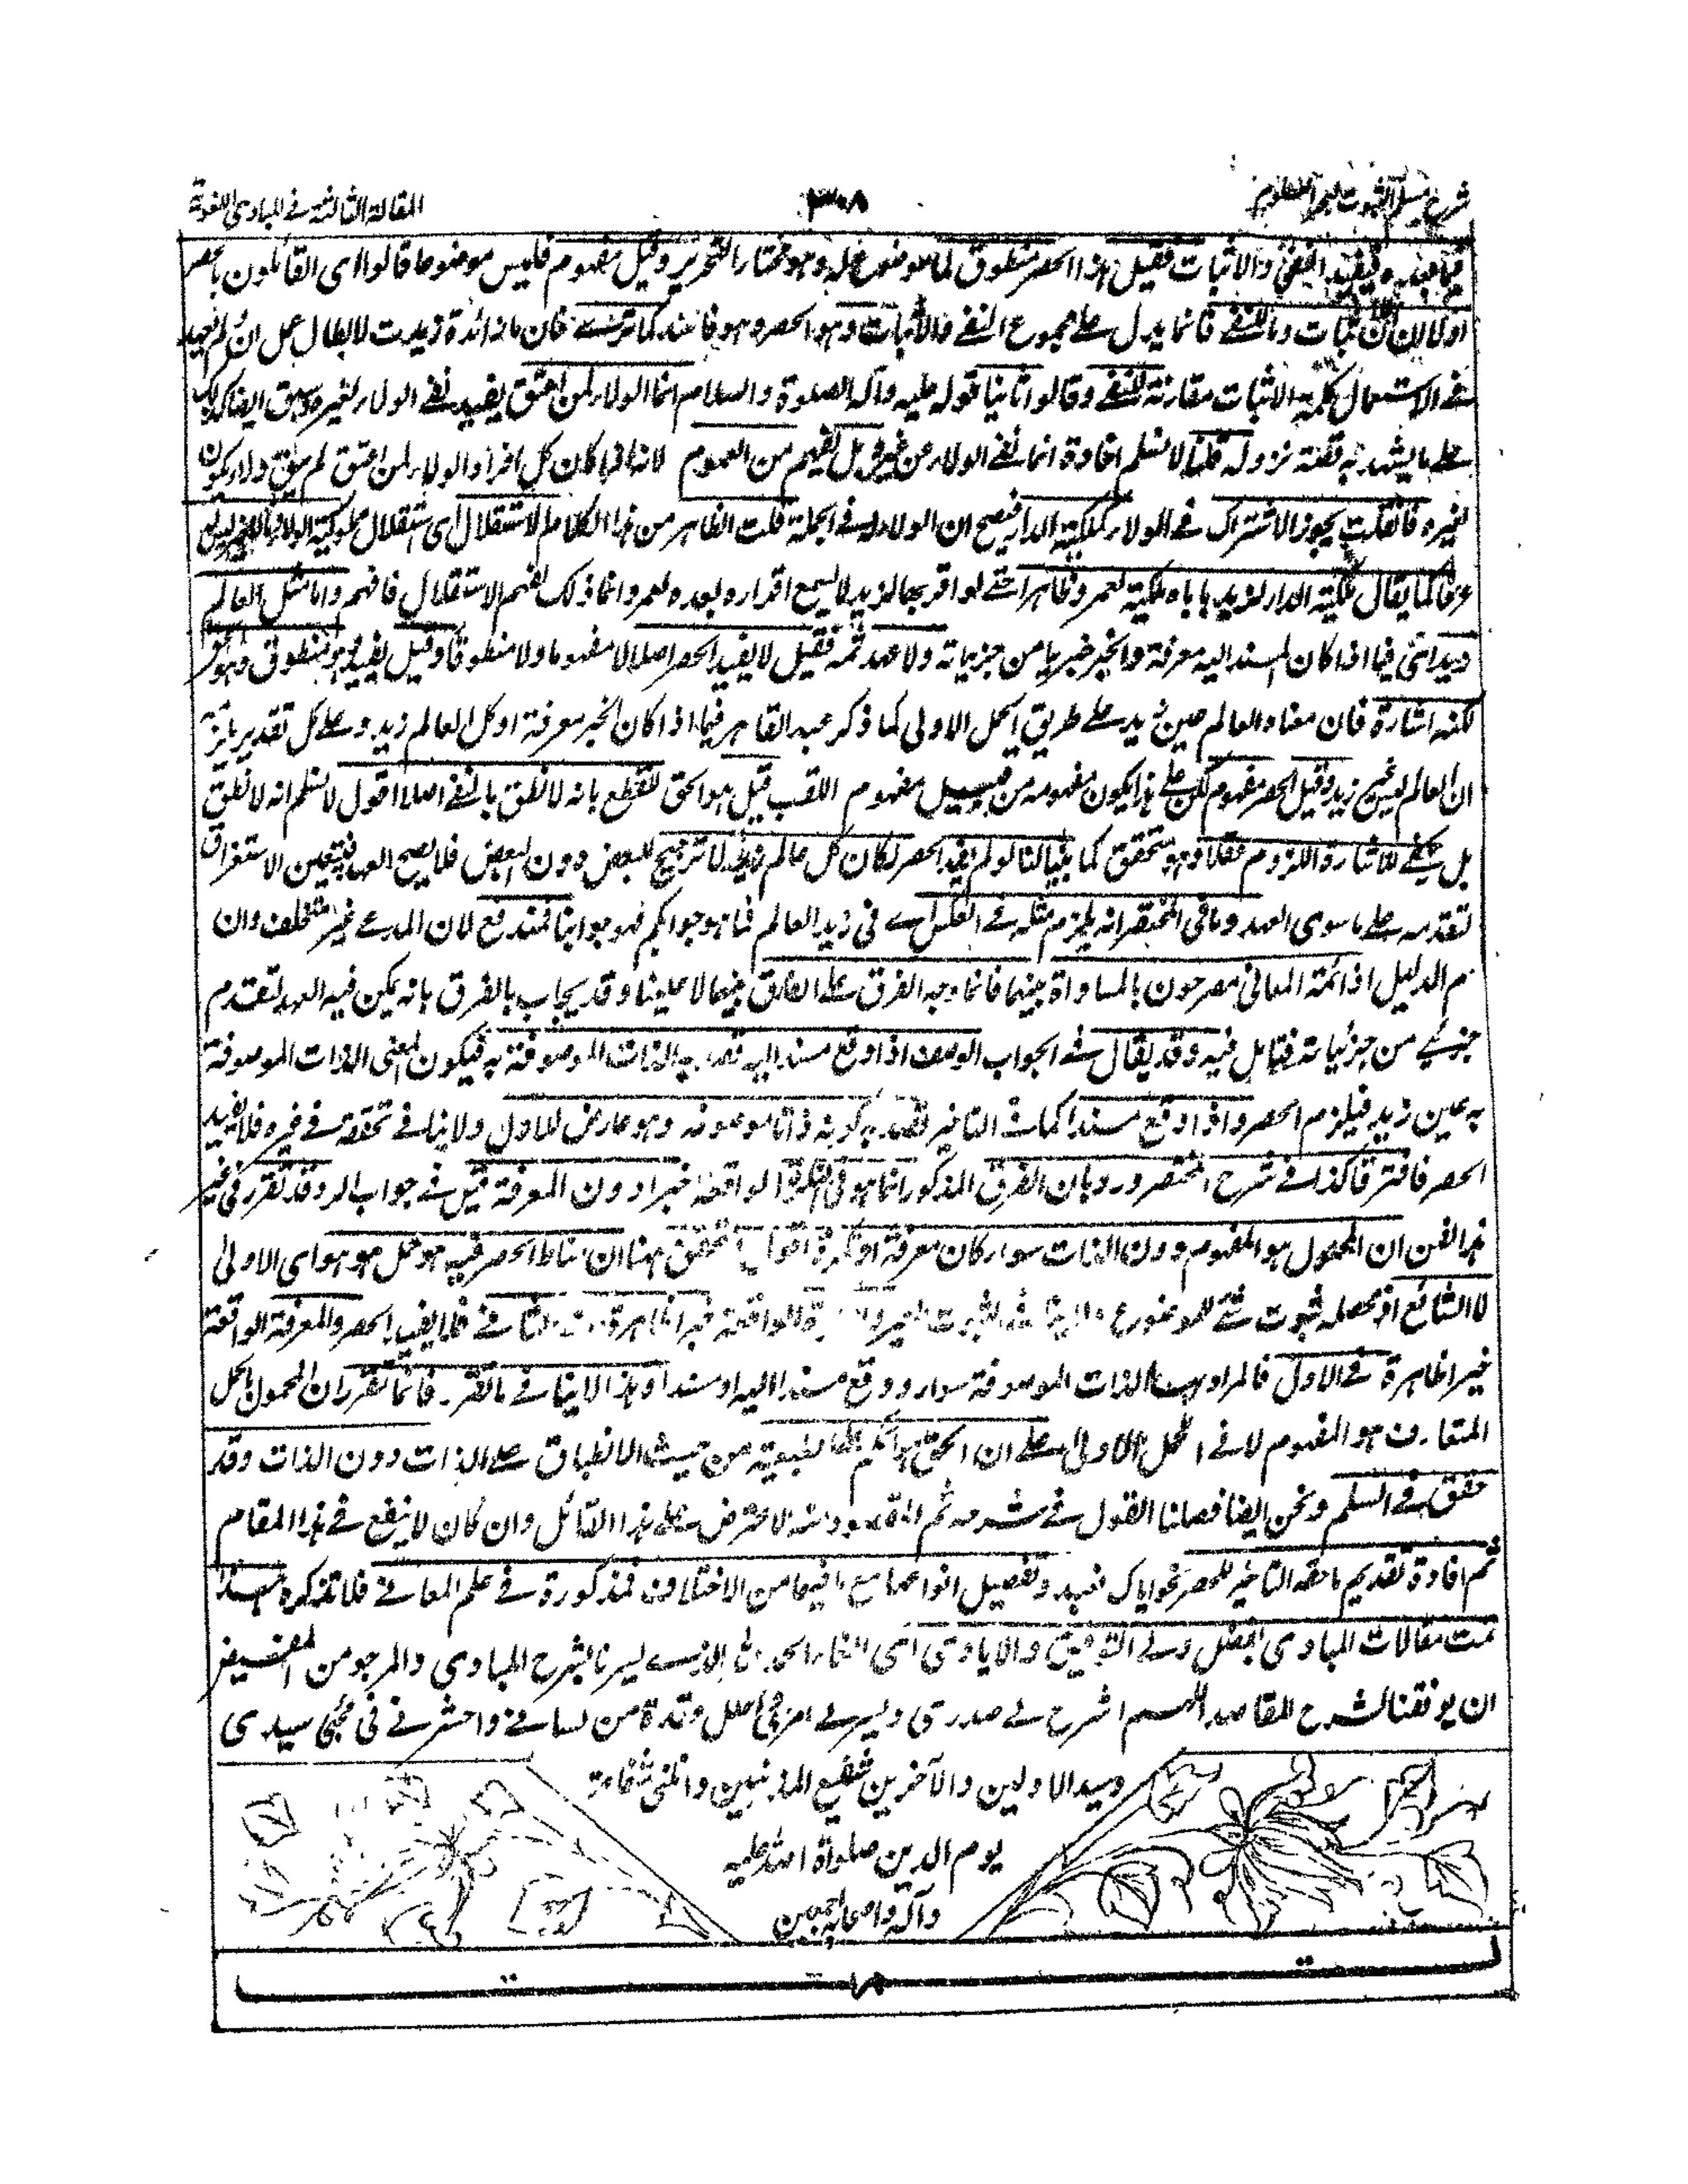 شرح مسلم الثبوت لبحر العلوم
٣٠٨
المقالة الثالثة فى المبادى اللغوية
فيما بعده فيفيد النفى والاثبات فقيل هذا الحصر منطوق لما موضوع له وهو مختار التحرير وقيل مفهوم فليس موضوعا قالوا اى القائلون بالحصر
اولا ان للاثبات وما للنفى فانما يدل على مجموع النفى والاثبات وهو الحصر وهو فاسد كما ترى فان ما زائدة زيدت لابطال عمل ان ولم يعهد
فى الاستعمال كلمة الاثبات مقارنة للنفى وقالوا ثانيا قوله عليه وآله الصلوة والسلام انما الولاء لمن اعتق يفيد نفى الولاء لغيره وسبق ايضا كذلك
على ما يشهد به قصة نزوله قلنا لا نسلم افادة انما نفى الولاء من غيره بل يفهم من العموم لانه اذا كان كل افراد الولاء لمن اعتق لم يبق ولاء يكون
لغيره فان قلت يجوز الاشتراك فى الولاء كملكية الدار فيصح ان الولاء له فى الجملة قلت الظاهر من هذا الكلام الاستقلال اى استقلال مملوكية الولاء
عرفا كما يقال ملكية الدار لزيد يأباه ملكية لعمرو ظاهرا حتى لو اقر بها لزيد لا يسمع اقراره بعده لعمرو انما ذلك لفهم الاستقلال فافهم واما مثل العالم
زيد اى فيما اذا كان المسند اليه معرفة والخبر جزئيا من جزئياته ولا عهد ثمه فقيل لا يفيد الحصر اصلا لا مفهوما ولا منطوقا وقيل يفيد وهو منطوق وهو الحق
لكنه اشارة فان معناه العالم عين زيد على طريق الحمل الاولى كما ذكر عبد القاهر فيما اذا كان الخبر معرفة او كل العالم زيد وعلى كل تقدير يلزم
ان العالم ليس غير زيد وقيل الحصر مفهوم لكن على هذا يكون مفهومه من قبيل مفهوم اللقب قيل هو الحق للقطع بانه لا نطق بالنفى اصلا اقول لا نسلم انه لا نطق
بل يكفى للاشارة اللزوم عقلا وهو متحقق كما بينا لنا لو لم يفد الحصر لكان كل عالم زيدا اذ لا ترجيح للبعض دون البعض فلا يصح العهد فيتعين الاستغراق
لتقدمه على ما سوى العهد وما فى المختصر انه يلزم مثله فى العكس اى فى زيد العالم فما هو جوابكم فهو جوابنا فمندفع لان المدعى غير متخلف وان
م الدليل اذ ائمة المعانى مصرحون بالمساواة بينهما فانما وجه الفرق على الفارق بينهما لا علينا وقد يجاب بالفرق بانه يمكن فيه العهد لتقدم
جزئى من جزئياته فتأمل فيه وقد يقال فى الجواب الوصف اذا وقع مسندا اليه قصد به الذات الموصوفة به فيكون المعنى الذات الموصوفة
به عين زيد فيلزم الحصر واذا وقع مسندا كما فى التاخير قصد به كونه ذاتا موصوفه وهو عارض للاول ولا ينافى تحققه فى غيره فلا يفيد
الحصر فافترقا كذا فى شرح المختصر ورد بان الفرق المذكور انما هو فى النكرة الواقعة خبرا دون المعرفة قيل فى جواب الرد وقد تقرر فى غير
هذا الفن ان المحمول هو المفهوم دون الذات سواء كان معرفة او نكرة اقول التحقيق ههنا ان مناط الحصر فيه هو حمل هو هو اى الاولى
لا الشائع اذ محصله ثبوت شئ للموضوع ... الواقعة خبرا ظاهرة فى الثانى فلا يفيد الحصر والمعرفة الواقعة
خبرا ظاهرة فى الاول فالمراد بهما الذات الموصوفة سواء وقع مسندا اليه او مسندا وهذا لا ينافى ما تقرر فانما تقرر ان المحمول بالحمل
المتعارف هو المفهوم لا فى الحمل الاولى على ان الحق ان الحكم على الطبيعة من حيث الانطباق على الذات دون الذات وقد
حقق فى السلم ونحن ايضا فصلنا القول فى شرحه ثم المقصود منه الاعتراض على هذا القائل وان كان لا ينفع فى هذا المقام
ثم افادة تقديم ما حقه التاخير للحصر نحو اياك نعبد وتفصيل انواعها مع ما فيها من الاختلاف فمذكورة فى علم المعانى فلا نذكره ههنا
تمت مقالات المبادى بفضل ولى التوفيق والايادى اى النعماء الحمد لله الذى يسر نا لشرح المبادى والمرجو من المفيض
ان يوفقنا لشرح المقاصد اللهم اشرح لى صدرى ويسر لى امرى واحلل عقدة من لسانى واحشرنى فى محبى سيدى
وسيد الاولين والآخرين شفيع المذنبين وانلنى شفاعته
يوم الدين صلوة الله عليه
وآله واصحابه اجمعين
تمت